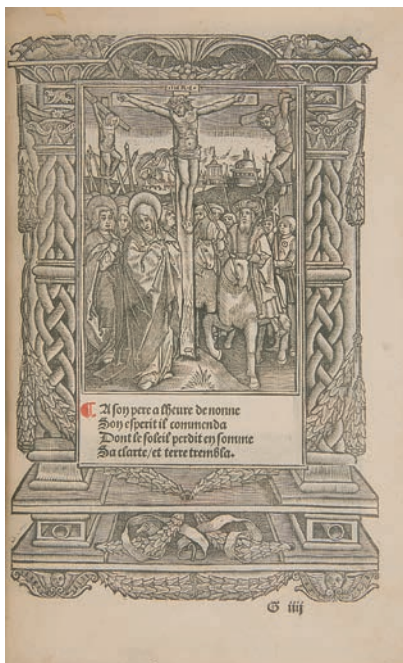 A son pere a lheure de nonne
Son esperit il commenda
Dont le soleil perdit en somme
Sa clarte/et terre trembla.
G iiij